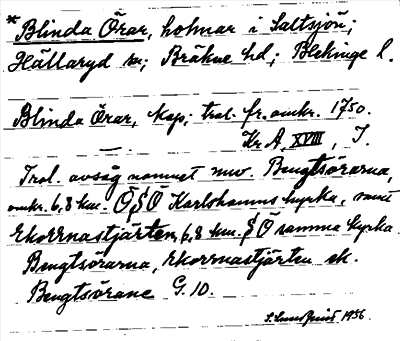 * Blinda Örar, holmar i Saltsjön;
Hällaryd sn; Bräkne hd; Blekinge l.
Blinda Örar, kap; trol. fr. omkr. 1750.
Kr. A. XVIII, I.
Trol. avsåg namnet nuv. Bengtsörarna,
omkr. 6,8 km. Ö § Ö Karlshamns kyrka, samt
Ekorrnastjärten, 6,8 km. § Ö samma kyrka.
Bengtsörarna, Ekorrnastjärten ek.
Bengtsörane G. 10.
S. Lundquist 1956.